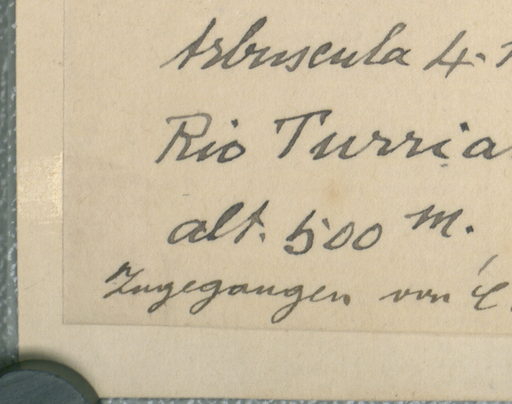 Arbuscula 4-
Rio Turria
alt. 500 m.
Zugegangen von C.